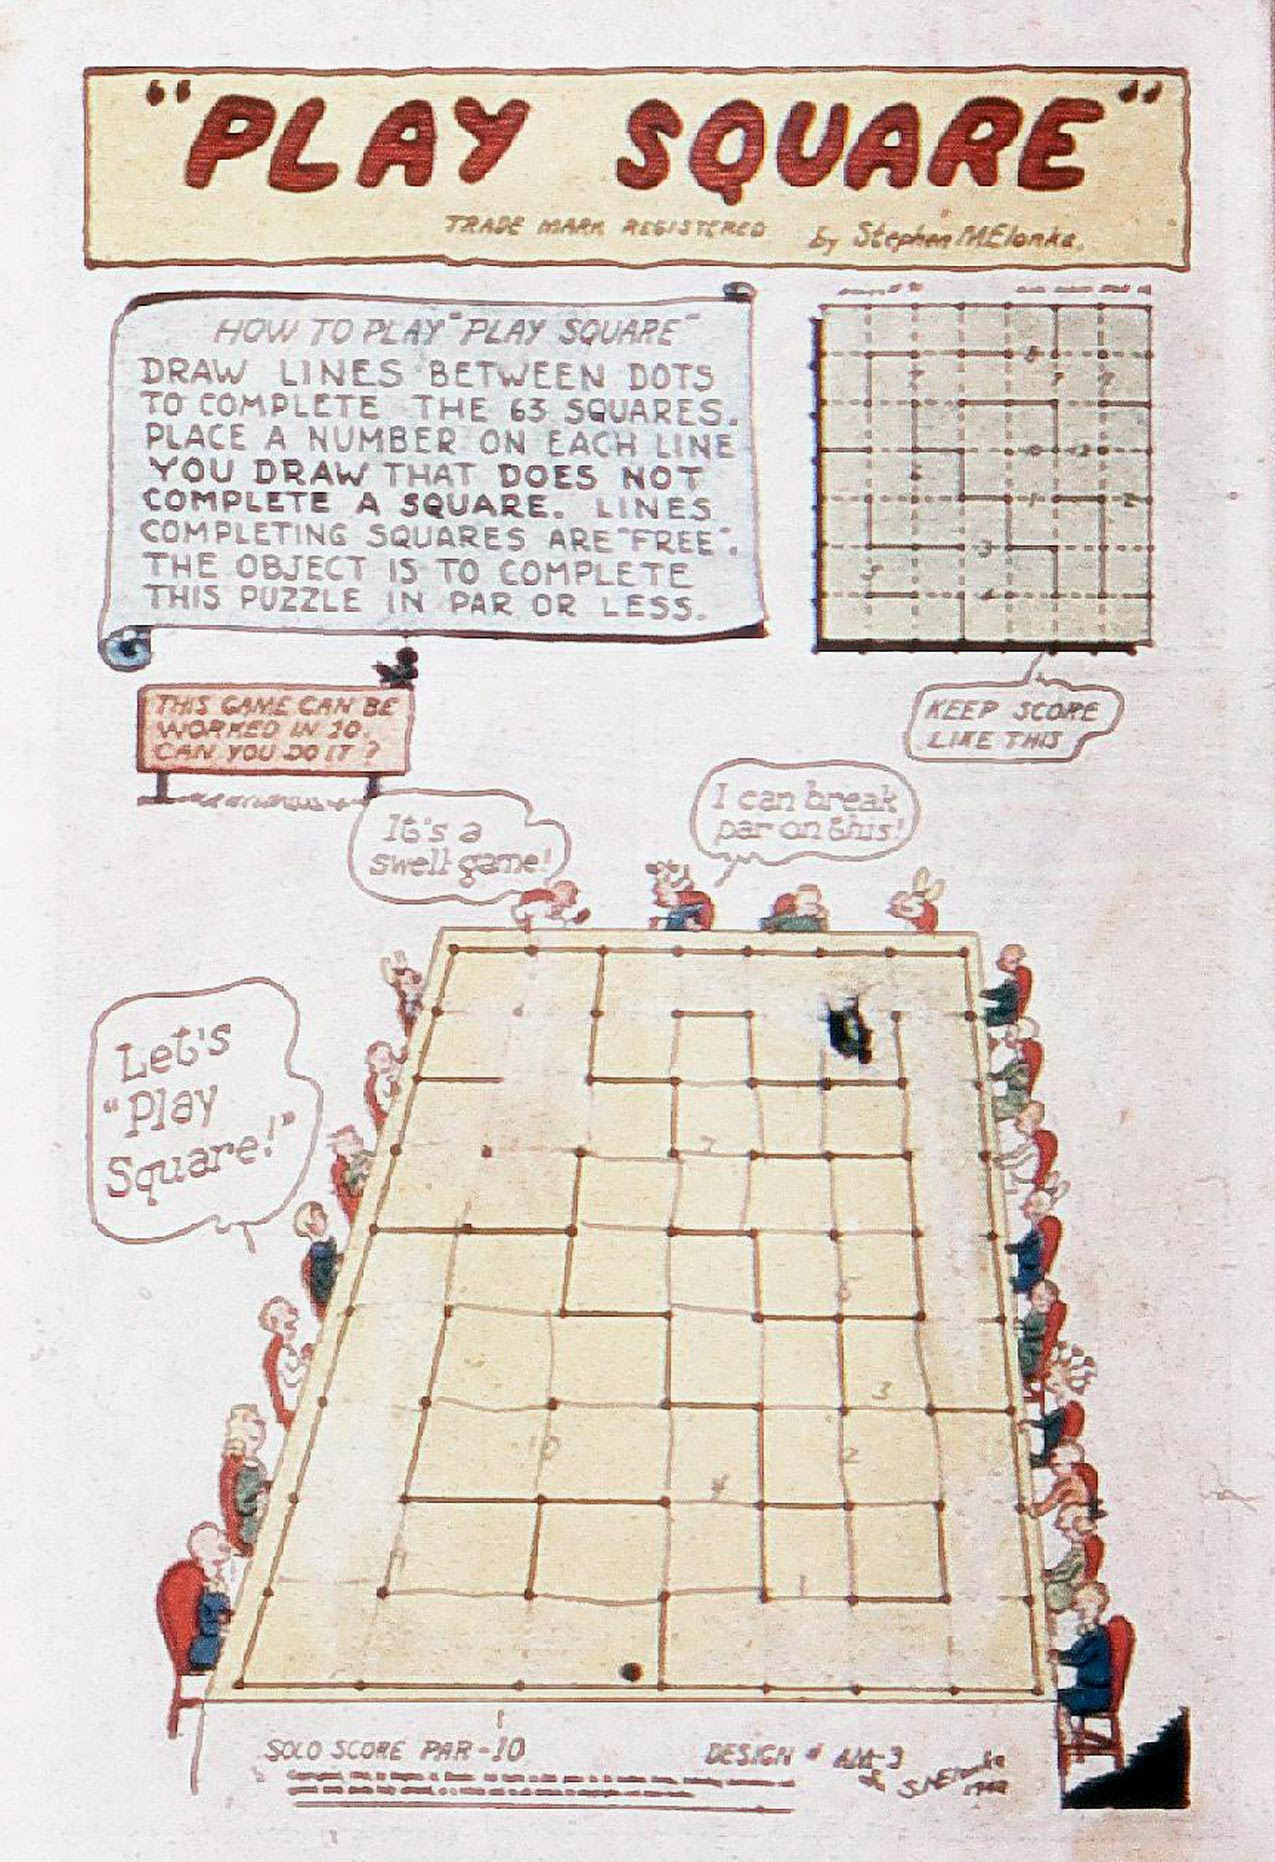 "PLAY SQUARE"
TRADE MARK REGISTERED by Stephen M. Elonka.
HOW TO PLAY "PLAY SQUARE"
DRAW LINES BETWEEN DOTS
TO COMPLETE THE 63 SQUARES.
PLACE A NUMBER ON EACH LINE
YOU DRAW THAT DOES NOT
COMPLETE A SQUARE. LINES
COMPLETING SQUARES ARE "FREE".
THE OBJECT IS TO COMPLETE
THIS PUZZLE IN PAR OR LESS.
KEEP SCORE
LIKE THIS
THIS GAME CAN BE
WORKED IN 10.
CAN YOU DO IT?
I can break
par on this!
It's a
swell game!
Let's
"Play
Square!"
7
3
2
10
4
1
SOLO SCORE PAR-10
DESIGN